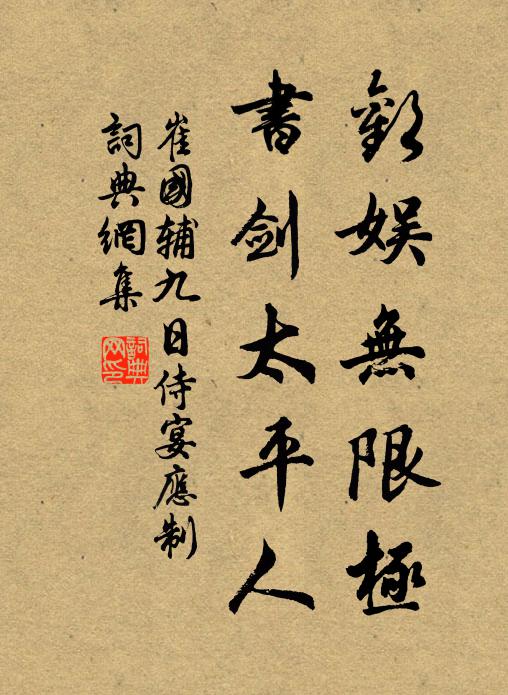 歡娛無限極
書劍太平人
崔國輔九日侍宴應制
詞典網集
詞典
网印